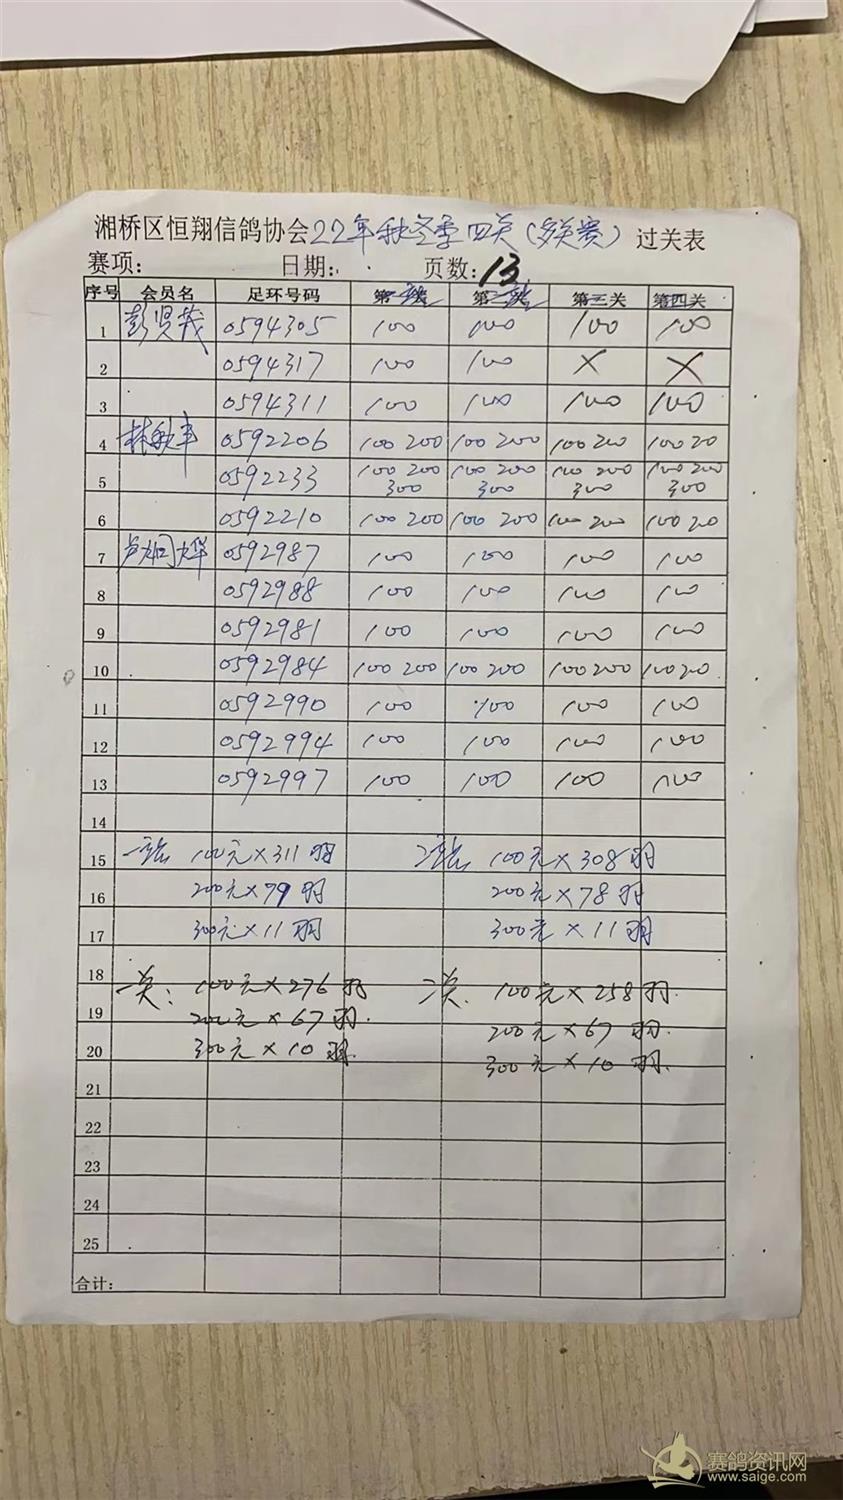 湘桥区恒翔信鸽协会22年秋冬季四关(多关赛)过关表
赛项: 日期: 页数:13
序号 会员名 足环号码 第一站 第二站 第三关 第四关
1 彭贤茂 0594305 100 100 100 100
2 0594317 100 100 × ×
3 0594311 100 100 100 100
4 林 0592206 100 200 100 200 100 200 100 20
5 0592233 100 200 300 100 200 300 100 200 300 100 200 300
6 0592210 100 200 100 200 100 200 100 20
7 卢 0592987 100 100 100 100
8 0592988 100 100 100 100
9 0592981 100 100 100 100
10 0592984 100 200 100 200 100 200 100 20
11 0592990 100 100 100 100
12 0592994 100 100 100 100
13 0592997 100 100 100 100
14
15 一站 100元×311羽 二站 100元×308羽
16 200元×79羽 200元×78羽
17 300元×11羽 300元×11羽
18
一关: 100元×276羽 二关. 100元×258羽.
19 200元×67羽. 200元×67羽.
20 300元×10羽. 300元×10羽.
21
22
23
24
25
合计:
赛鸽资讯网
www.saige.com